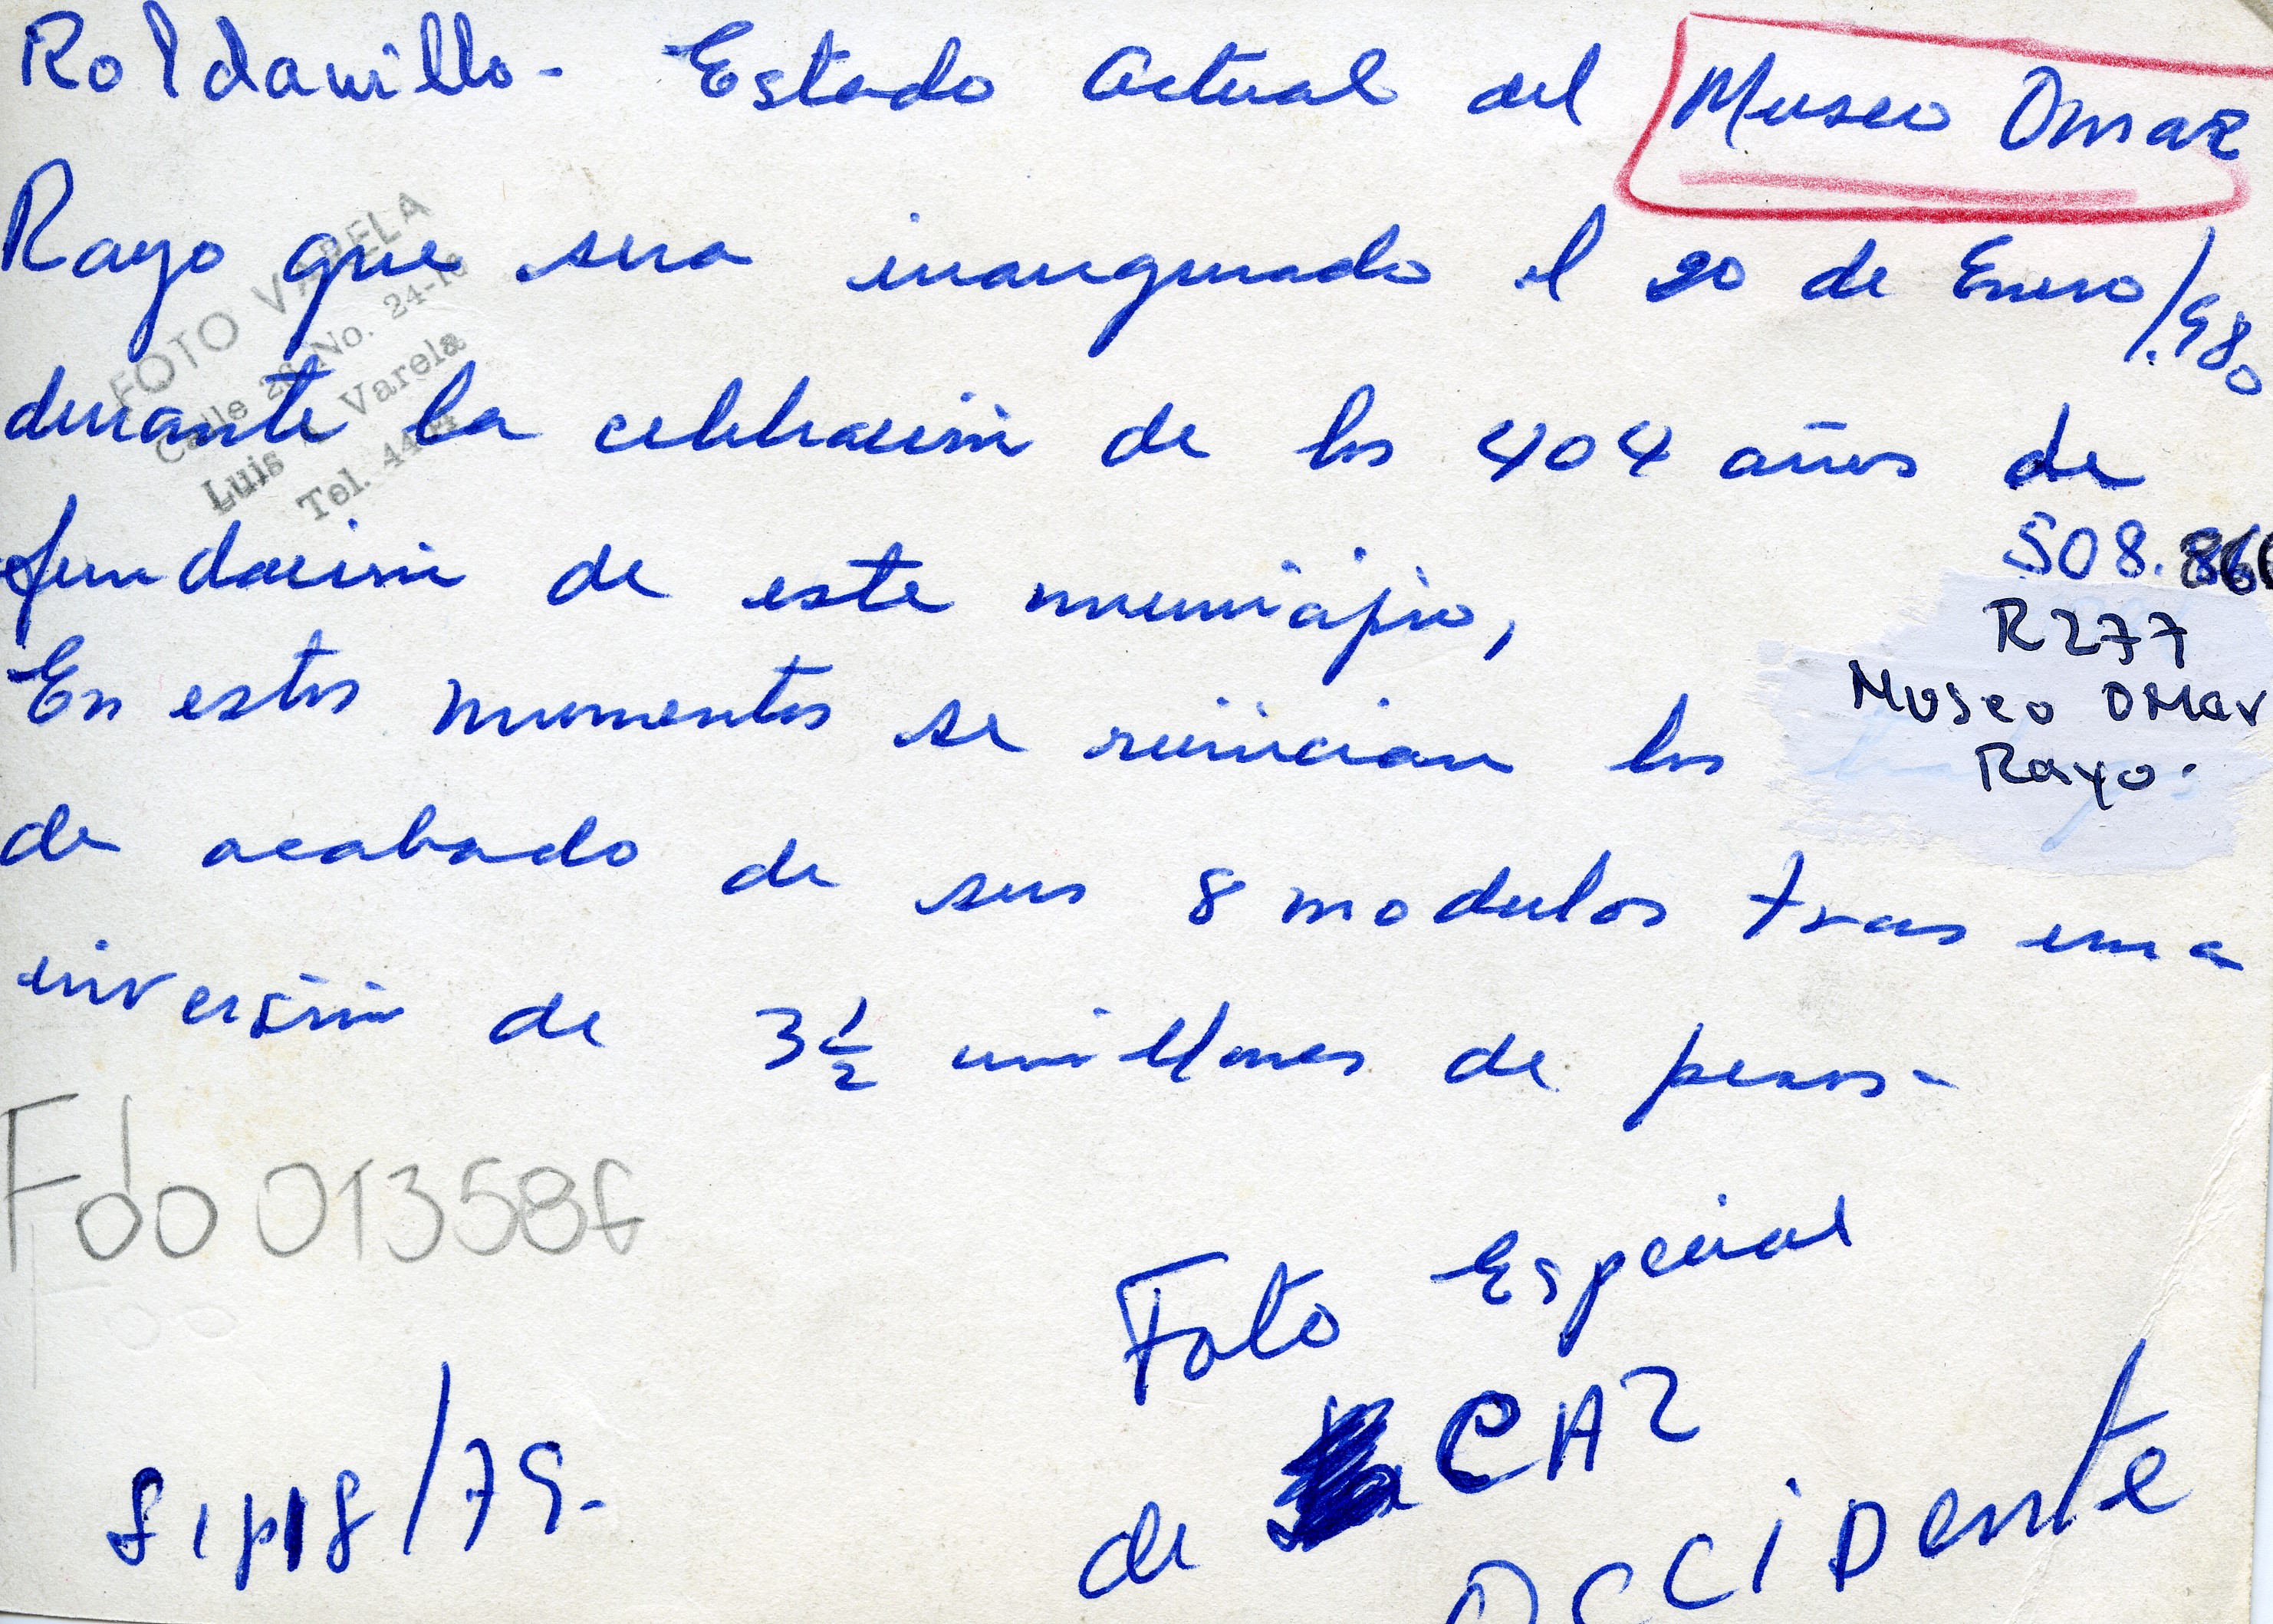 Roldanillo - Estado actual del Museo Omar
Rayo que sera inaugurado el 20 de Enero/.980
durante la celebración de los 404 años de
fundación de este municipio,
En estos momentos se reinician los
de acabado de sus 8 modulos tras una
inversión de 3½ millones de pesos-
508.866
R277
Museo Omar
Rayo.
FOTO VARELA
Calle No. 24-
Luis Varela
Tel.
Fdo 013586
Foto Especial
de CAZ
OCCIDente
/79-